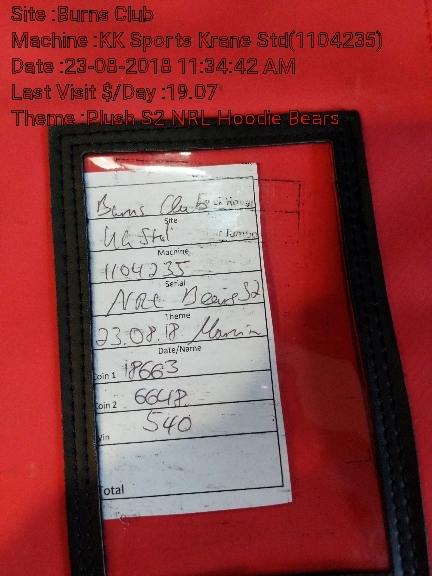 Site :Burns Club
Machine :KK Sports Krane Std(1104235)
Date :23-08-2018 11:34:42 AM
Last Visit $/Day :19.07
Theme :Plush S2 NRL Hoodie Bears
Burns Club
Site
Std
Machine
1104235
Serial
NRL Bears S2
Theme
23.08.18
Date/Name
Coin 1 18663
Coin 2 6648
Win 540
Total